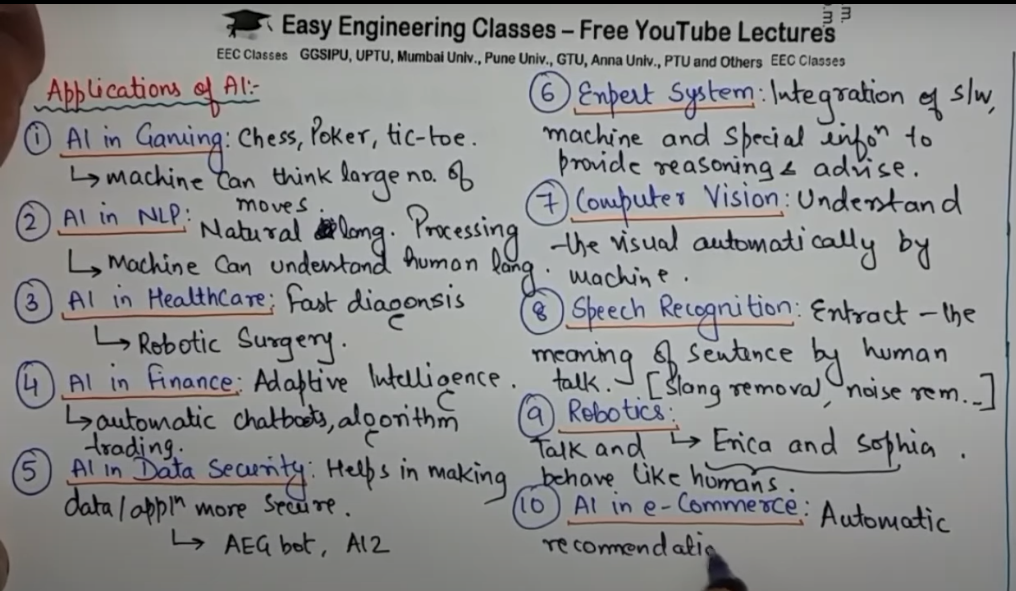 Easy Engineering Classes – Free YouTube Lectures
EEC Classes GGSIPU, UPTU, Mumbai Univ., Pune Univ., GTU, Anna Univ., PTU and Others EEC Classes
Applications of AI:-
① AI in Gaming: Chess, Poker, tic-toe.
↳ machine can think large no. of
moves.
② AI in NLP: Natural lang. Processing
↳ Machine Can understand human lang.
③ AI in HealthCare: fast diagonsis
↳ Robotic Surgery.
④ AI in Finance: Adaptive Intelligence.
↳ automatic chatboots, algorithm
trading.
⑤ AI in Data Security: Helps in making
data/applⁿ more secure.
↳ AEG bot, AI2
⑥ Expert System: Integration of s/w,
machine and special infoⁿ to
provide reasoning & advise.
⑦ Computer Vision: Understand
the visual automatically by
machine.
⑧ Speech Recognition: Extract the
meaning of sentence by human
talk. [Slang removal, noise rem...]
⑨ Robotics:
↳ Erica and Sophia.
Talk and
behave like humans.
⑩ AI in e-Commerce: Automatic
recommendatio